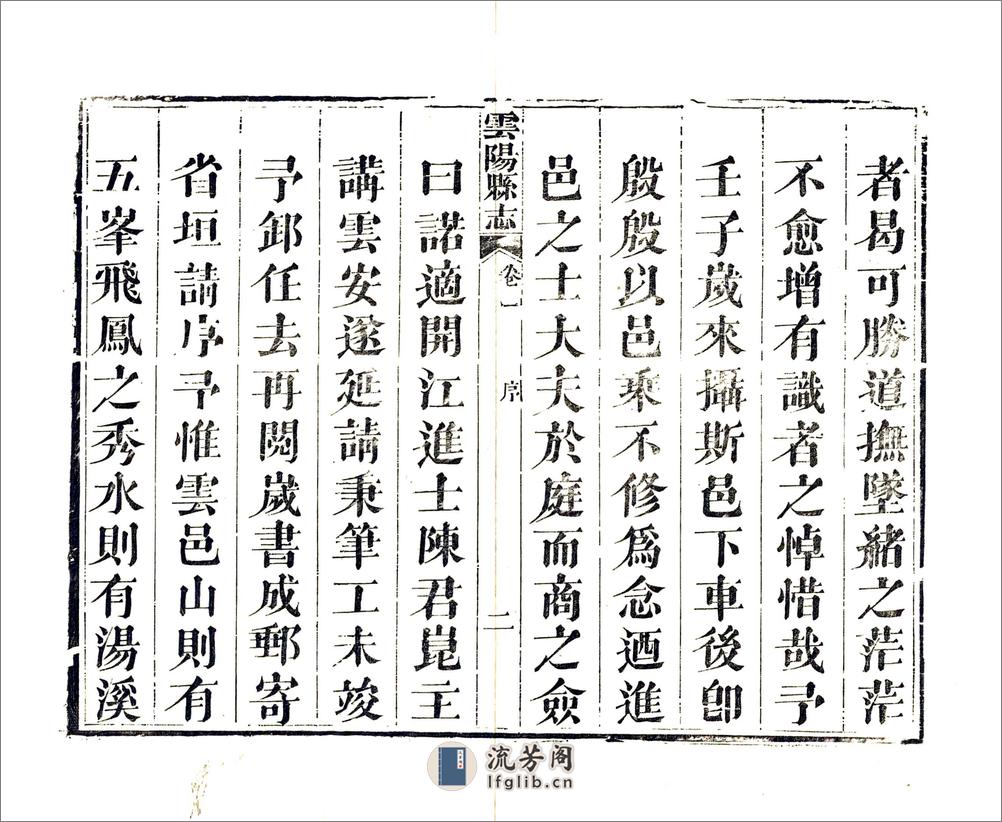 者曷可勝道撫墜緒之茫茫
不愈增有識者之悼惜哉予
壬子歲來攝斯邑下車後卽
殷殷以邑乘不修爲念迺進
邑之士大夫於庭而商之僉
雲陽縣志 卷一 序 二
曰諾適開江進士陳君崑主
講雲安遂延請秉筆工未竣
予卸任去再閱歲書成郵寄
省垣請序予惟雲邑山則有
五峯飛鳳之秀水則有湯溪
流芳阁
lfglib.cn